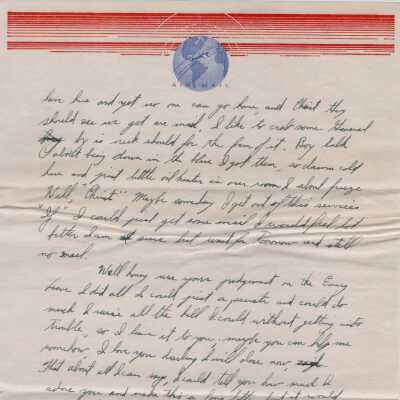 AIR MAIL
here his and yet no one can go home, and Christ they
should see we got are mad, I like to crab some General
by is neck should for the fun of it. Boy talk
about being down in the blue I got them, so damn cold
here and just little oil heater in our room I about freeze
Well, "Christ" Maybe someday I get out of this services
If I could just get some mail I would feel lot
better I am sure but wait for tomorrow and still
no mail.
Well honey use your judgement on the Emmy
here I did all I could just a private and could do
much I raise all the hell I could without getting into
trouble, so I leave it to you, maybe you can help me
somehow, I love you darling I will close now,
that about all I can say, I could tell you how much I
adore you and make this a long letter but it would